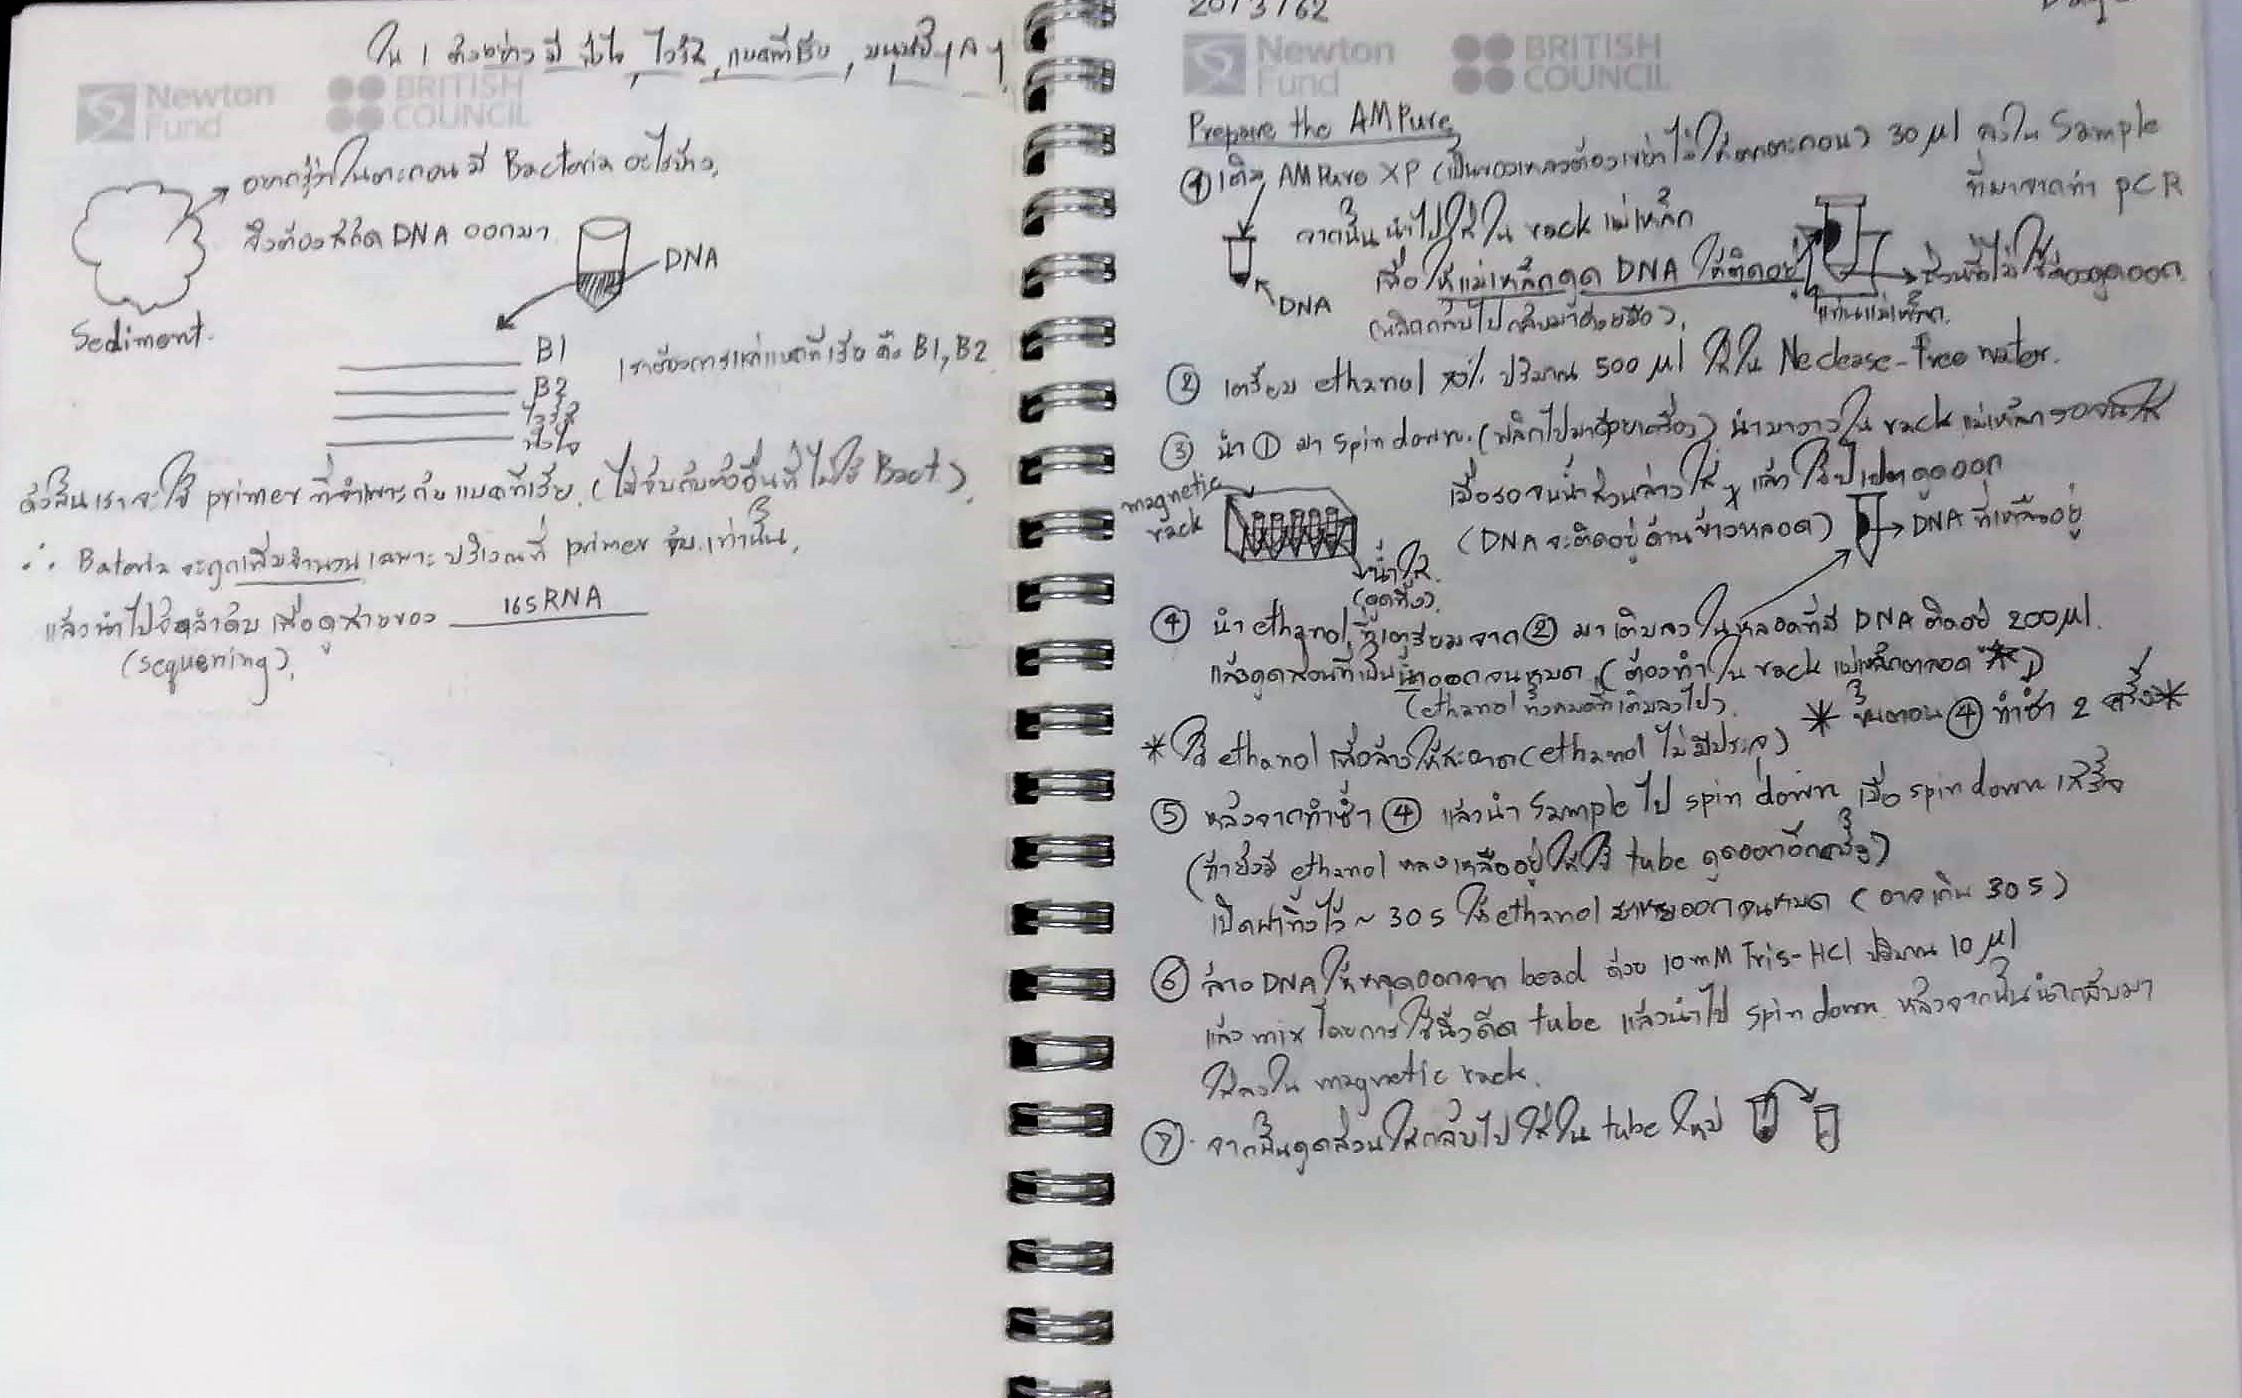 ใน 1 ตัวอย่าง มี ฟังไจ, ไวรัส, แบคทีเรีย, มนุษย์ ๆ ล ๆ
Newton Fund
BRITISH COUNCIL
อยากรู้ว่าในตะกอนมี Bacteria อะไรบ้าง,
จึงต้องสกัด DNA ออกมา
DNA
Sediment.
B1
B2
ไวรัส
ฟังไจ
เราต้องการแค่แบคทีเรีย คือ B1, B2
ดังนั้นเราจะใช้ primer ที่จำเพาะกับ แบคทีเรีย. (ไม่จับกับตัวอื่นที่ไม่ใช่ Bact.)
∴ Bateria จะถูกเพิ่มจำนวน เฉพาะ บริเวณที่ primer จับ เท่านั้น,
แล้วนำไปจัดลำดับ เพื่อดูสายของ 16sRNA
(sequening).
20/3/62
Newton Fund
BRITISH COUNCIL
Prepare the AMPure
① เติม AMPure XP (เป็นของเหลวต้องเขย่าไม่ให้ตกตะกอน) 30 µl ลงใน Sample
ที่มาจากทำ PCR
จากนั้นนำไปใส่ใน rack แม่เหล็ก
เพื่อให้แม่เหล็กดูด DNA ให้ติดอยู่
DNA
(พลิกกลับไปกลับมาด้วยมือ).
ส่วนที่ไม่ใช้ต้องดูดออก
แท่นแม่เหล็ก.
② เตรียม ethanol 70% ปริมาณ 500 µl ใส่ใน Neclease-free water.
③ นำ ① มา spin down. (พลิกไปมาด้วยเครื่อง) นำมาวางใน rack แม่เหล็ก รอจนใส
magnetic rack
เมื่อรอจนน้ำส่วนล่างใส แล้วใช้ปิเปตดูดออก
(DNA จะติดอยู่ด้านข้างหลอด)
DNA ที่เหลืออยู่
น้ำใส.
(ดูดทิ้ง).
④ นำ ethanol ที่เตรียมจาก ② มาเติมลงในหลอดที่มี DNA ติดอยู่ 200 µl.
แล้วดูดส่วนที่เป็นน้ำออกจนหมด (ต้องทำใน rack แม่เหล็กตลอด *)
(ethanol ทั้งหมดที่เติมลงไป).
* ขั้นตอน ④ ทำซ้ำ 2 ครั้ง *
* ใช้ ethanol เพื่อล้างให้สะอาด (ethanol ไม่มีประจุ)
⑤ หลังจากทำซ้ำ ④ แล้วนำ Sample ไป spin down เมื่อ spin down เสร็จ
(ถ้ายังมี ethanol หลงเหลืออยู่ให้ใช้ tube ดูดออกอีกครั้ง)
เปิดฝาทิ้งไว้ ~ 30 s ให้ ethanol ระเหยออกจนหมด (อาจเกิน 30 s)
⑥ ล้าง DNA ให้หลุดออกจาก bead ด้วย 10 mM Tris-HCl ปริมาณ 10 µl
แล้ว mix โดยการใช้นิ้วดีด tube แล้วนำไป spin down หลังจากนั้นนำกลับมา
ใส่ลงใน magnetic rack.
⑦. จากนั้นดูดส่วนใสกลับไปใส่ใน tube ใหม่